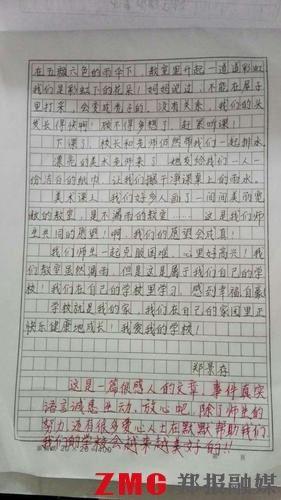 在五颜六色的雨伞下，教室里升起一道道彩虹
我们是彩虹下的花朵！妈妈说过，不能在屋子
里打伞，会变成秃子的。没有关系，我们的头
发长得快啊！顾不得多想了，赶紧听课！
下课了，校长和老师们带我们一起排水
漂亮的美术老师来了，她发给我们一人一
份洁白的纸巾，让我们擦干净课桌上的雨水。
美术课上，我们好多人画了一间间美丽宽
敞的教室，是不漏雨的教室……这是我们师
生共同的愿望！啊，我们的愿望会成真！
我们师生一起克服困难，心里好高兴！我
们教室虽然漏雨，但是这是属于我们自己的学
校！我们在自己的学校里学习，感到幸福自豪！
学校就是我们的家，我们在自己的家园里正
快乐健康地成长！我爱我的学校！
郑景存
这是一篇很感人的文章，事件真实
语言诚恳生动，放心吧，除了师生的
努力，还有很多爱心人士在默默帮助我们
我们的学校会越来越美好的！！
ZMG 郑报融媒